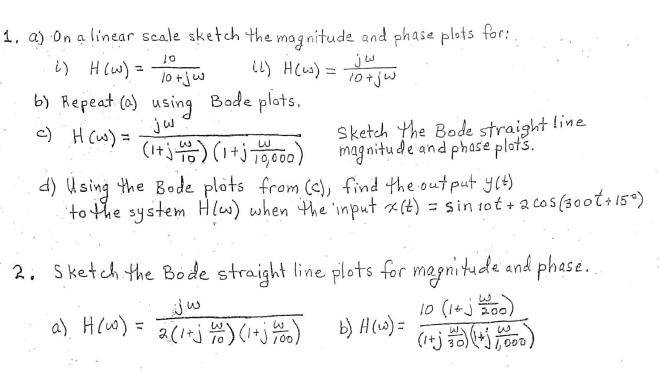 1. a) On a linear scale sketch the magnitude and phase plots for:
i) H(ω) = 10 / (10+jω)   ii) H(ω) = jω / (10+jω)
b) Repeat (a) using Bode plots.
c) H(ω) = jω / ((1+j ω/10)(1+j ω/10,000))   Sketch the Bode straight line
magnitude and phase plots.
d) Using the Bode plots from (c), find the output y(t)
to the system H(ω) when the input x(t) = sin 10t + 2 cos(300t+15°)
2. Sketch the Bode straight line plots for magnitude and phase.
a) H(ω) = jω / (2(1+j ω/10)(1+j ω/100))   b) H(ω) = 10(1+j ω/200) / ((1+j ω/30)(1+j ω/1,000))